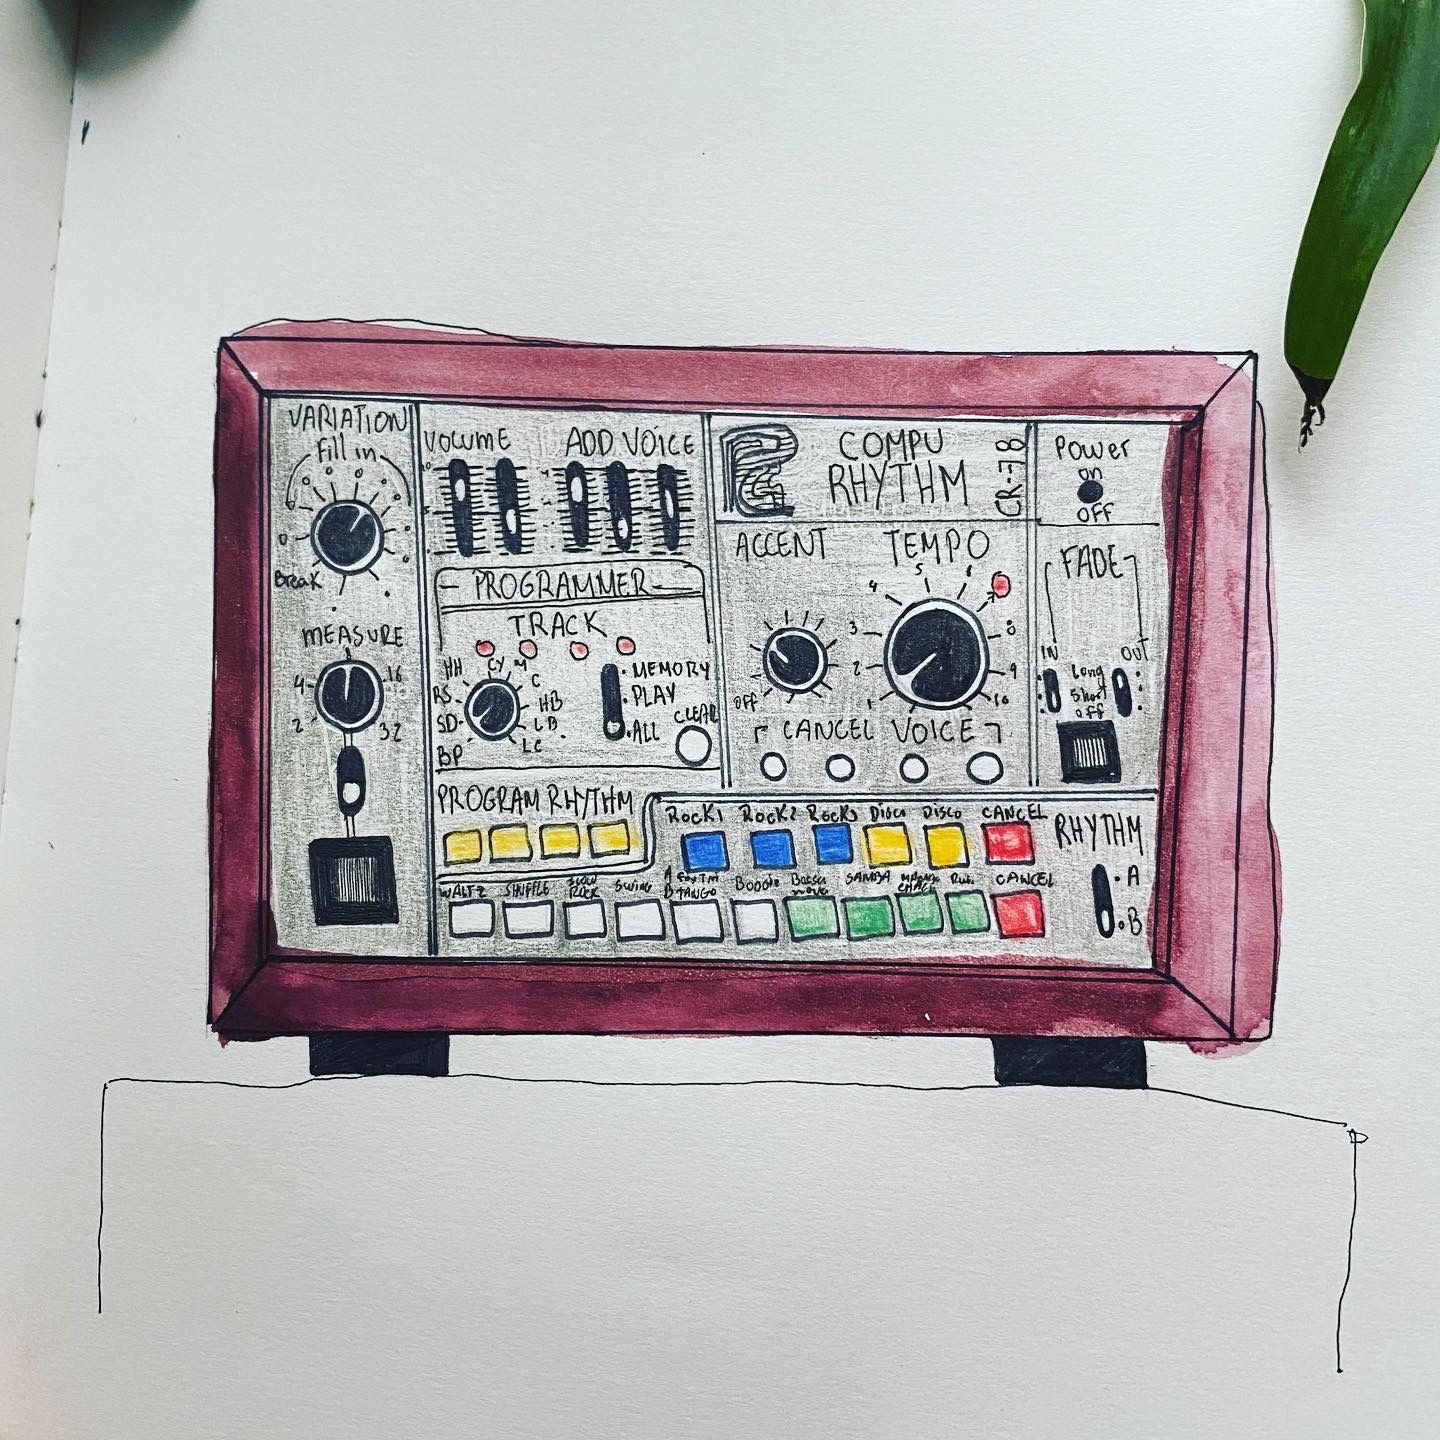 VARIATION
Fill in
0
Break
MEASURE
4
16
2
32
VOLUME
ADD VOICE
PROGRAMMER
TRACK
HH
CY
M
C
RS
HB
SD
LB
BP
LC
MEMORY
PLAY
ALL
CLEAR
COMPU
RHYTHM
CR-78
ACCENT
TEMPO
OFF
1
2
3
4
5
6
8
9
10
CANCEL VOICE
Power
on
OFF
FADE
IN
OUT
Long
Short
off
PROGRAM RHYTHM
ROCK1
ROCK2
ROCK3
Disco
Disco
CANCEL
RHYTHM
WALTZ
SHUFFLE
SLOW
ROCK
SWING
A
B
TANGO
Bossa
nova
SAMBA
CANCEL
A
B